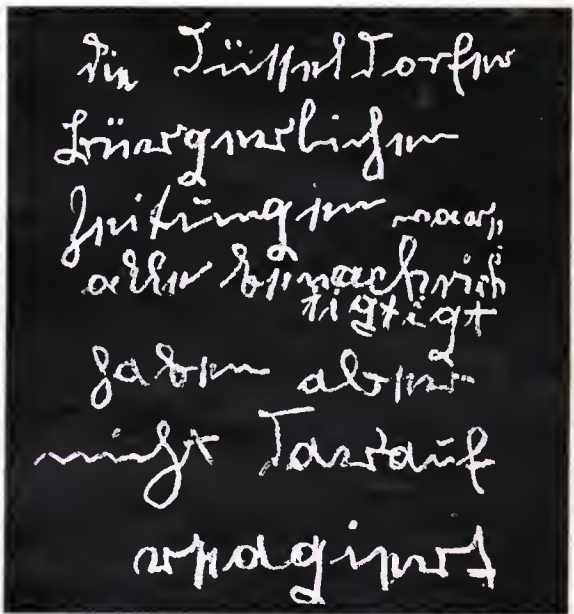 die Düsseldorfer
Bürgerlichen
Zeitungen
alle benachrich
tigtigt
haben aber
nicht Darauf
reagiert